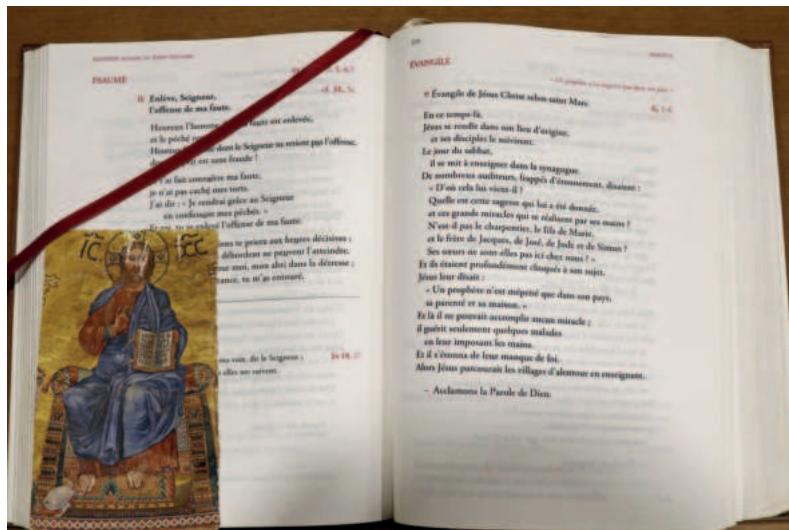 PSAUME
R/ Enlève, Seigneur,
l'offense de ma faute.
Heureux l'homme faute est enlevée,
et le péché
dont le Seigneur ne retient pas l'offense,
est sans fraude !
J'ai fait connaître ma faute,
je n'ai pas caché mes torts.
J'ai dit : « Je rendrai grâce au Seigneur
en confessant mes péchés. »
toi, tu as enlevé l'offense de ma faute.
te priera aux heures décisives ;
débordent ne peuvent l'atteindre.
pour moi, mon abri dans la détresse ;
tu m'as entouré.
ma voix, dit le Seigneur ;
elles me suivent.
Jn 10, 27
IC
ÉVANGILE
« Un prophète n'est méprisé que dans son pays »
Évangile de Jésus Christ selon saint Marc
6, 1-6
En ce temps-là,
Jésus se rendit dans son lieu d'origine,
et ses disciples le suivirent.
Le jour du sabbat,
il se mit à enseigner dans la synagogue.
De nombreux auditeurs, frappés d'étonnement, disaient :
« D'où cela lui vient-il ?
Quelle est cette sagesse qui lui a été donnée,
et ces grands miracles qui se réalisent par ses mains ?
N'est-il pas le charpentier, le fils de Marie,
et le frère de Jacques, de José, de Jude et de Simon ?
Ses sœurs ne sont-elles pas ici chez nous ? »
Et ils étaient profondément choqués à son sujet.
Jésus leur disait :
« Un prophète n'est méprisé que dans son pays,
sa parenté et sa maison. »
Et là il ne pouvait accomplir aucun miracle ;
il guérit seulement quelques malades
en leur imposant les mains.
Et il s'étonna de leur manque de foi.
Alors Jésus parcourait les villages d'alentour en enseignant.
– Acclamons la Parole de Dieu.